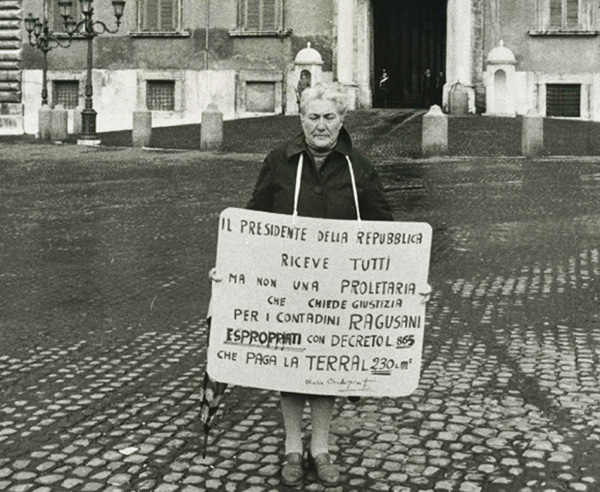 IL PRESIDENTE DELLA REPUBBLICA
RICEVE TUTTI
MA NON UNA PROLETARIA
CHE CHIEDE GIUSTIZIA
PER I CONTADINI RAGUSANI
ESPROPRIATI CON DECRETO L. 865
CHE PAGA LA TERRA L 230 L. M²
Maria